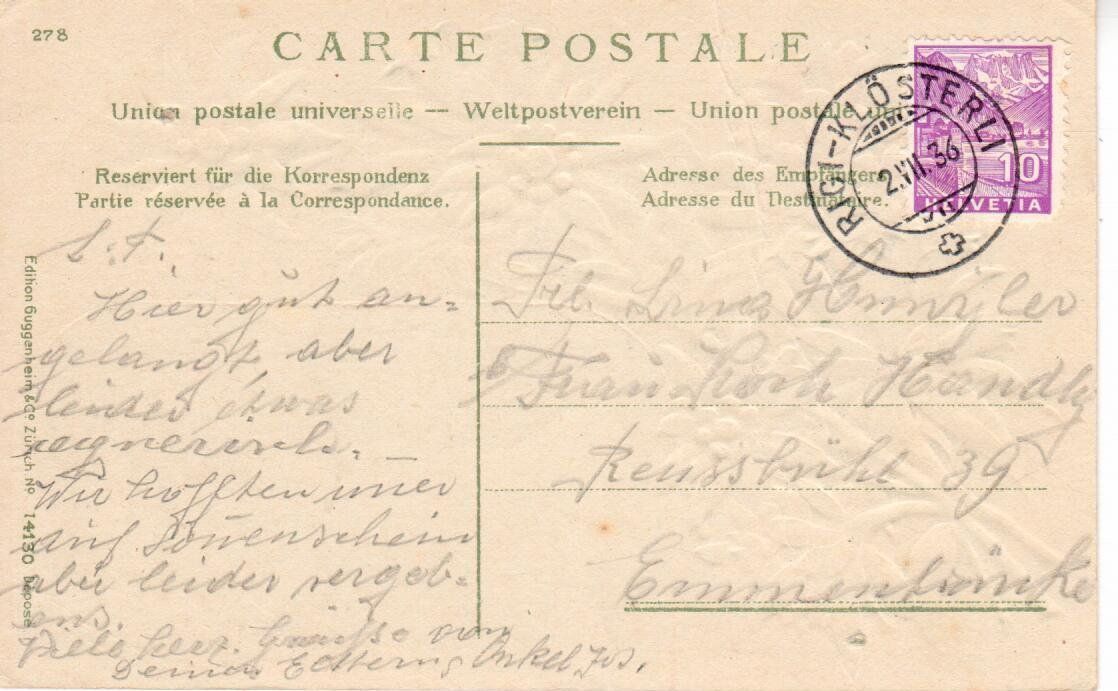 278
CARTE POSTALE
Union postale universelle — Weltpostverein — Union postale
Reserviert für die Korrespondenz
Partie réservée à la Correspondance.
Adresse des Empfängers.
Adresse du Destinataire.
RIGI-KLÖSTERLI
2.VII.36
10
HELVETIA
Edition Guggenheim & Co Zürich No 14130 Déposé
Hier gut an-
gelangt, aber
leider etwas
regnerisch. —
Wir hofften imer
auf Sonenschein
aber leider vergeb-
ens.
Viele herz. Grüsse von
Deinen Eltern, Onkel Jos.
Frl. Lina
Frau Koch Handlg
Reussbühl 39
Emmenbrücke